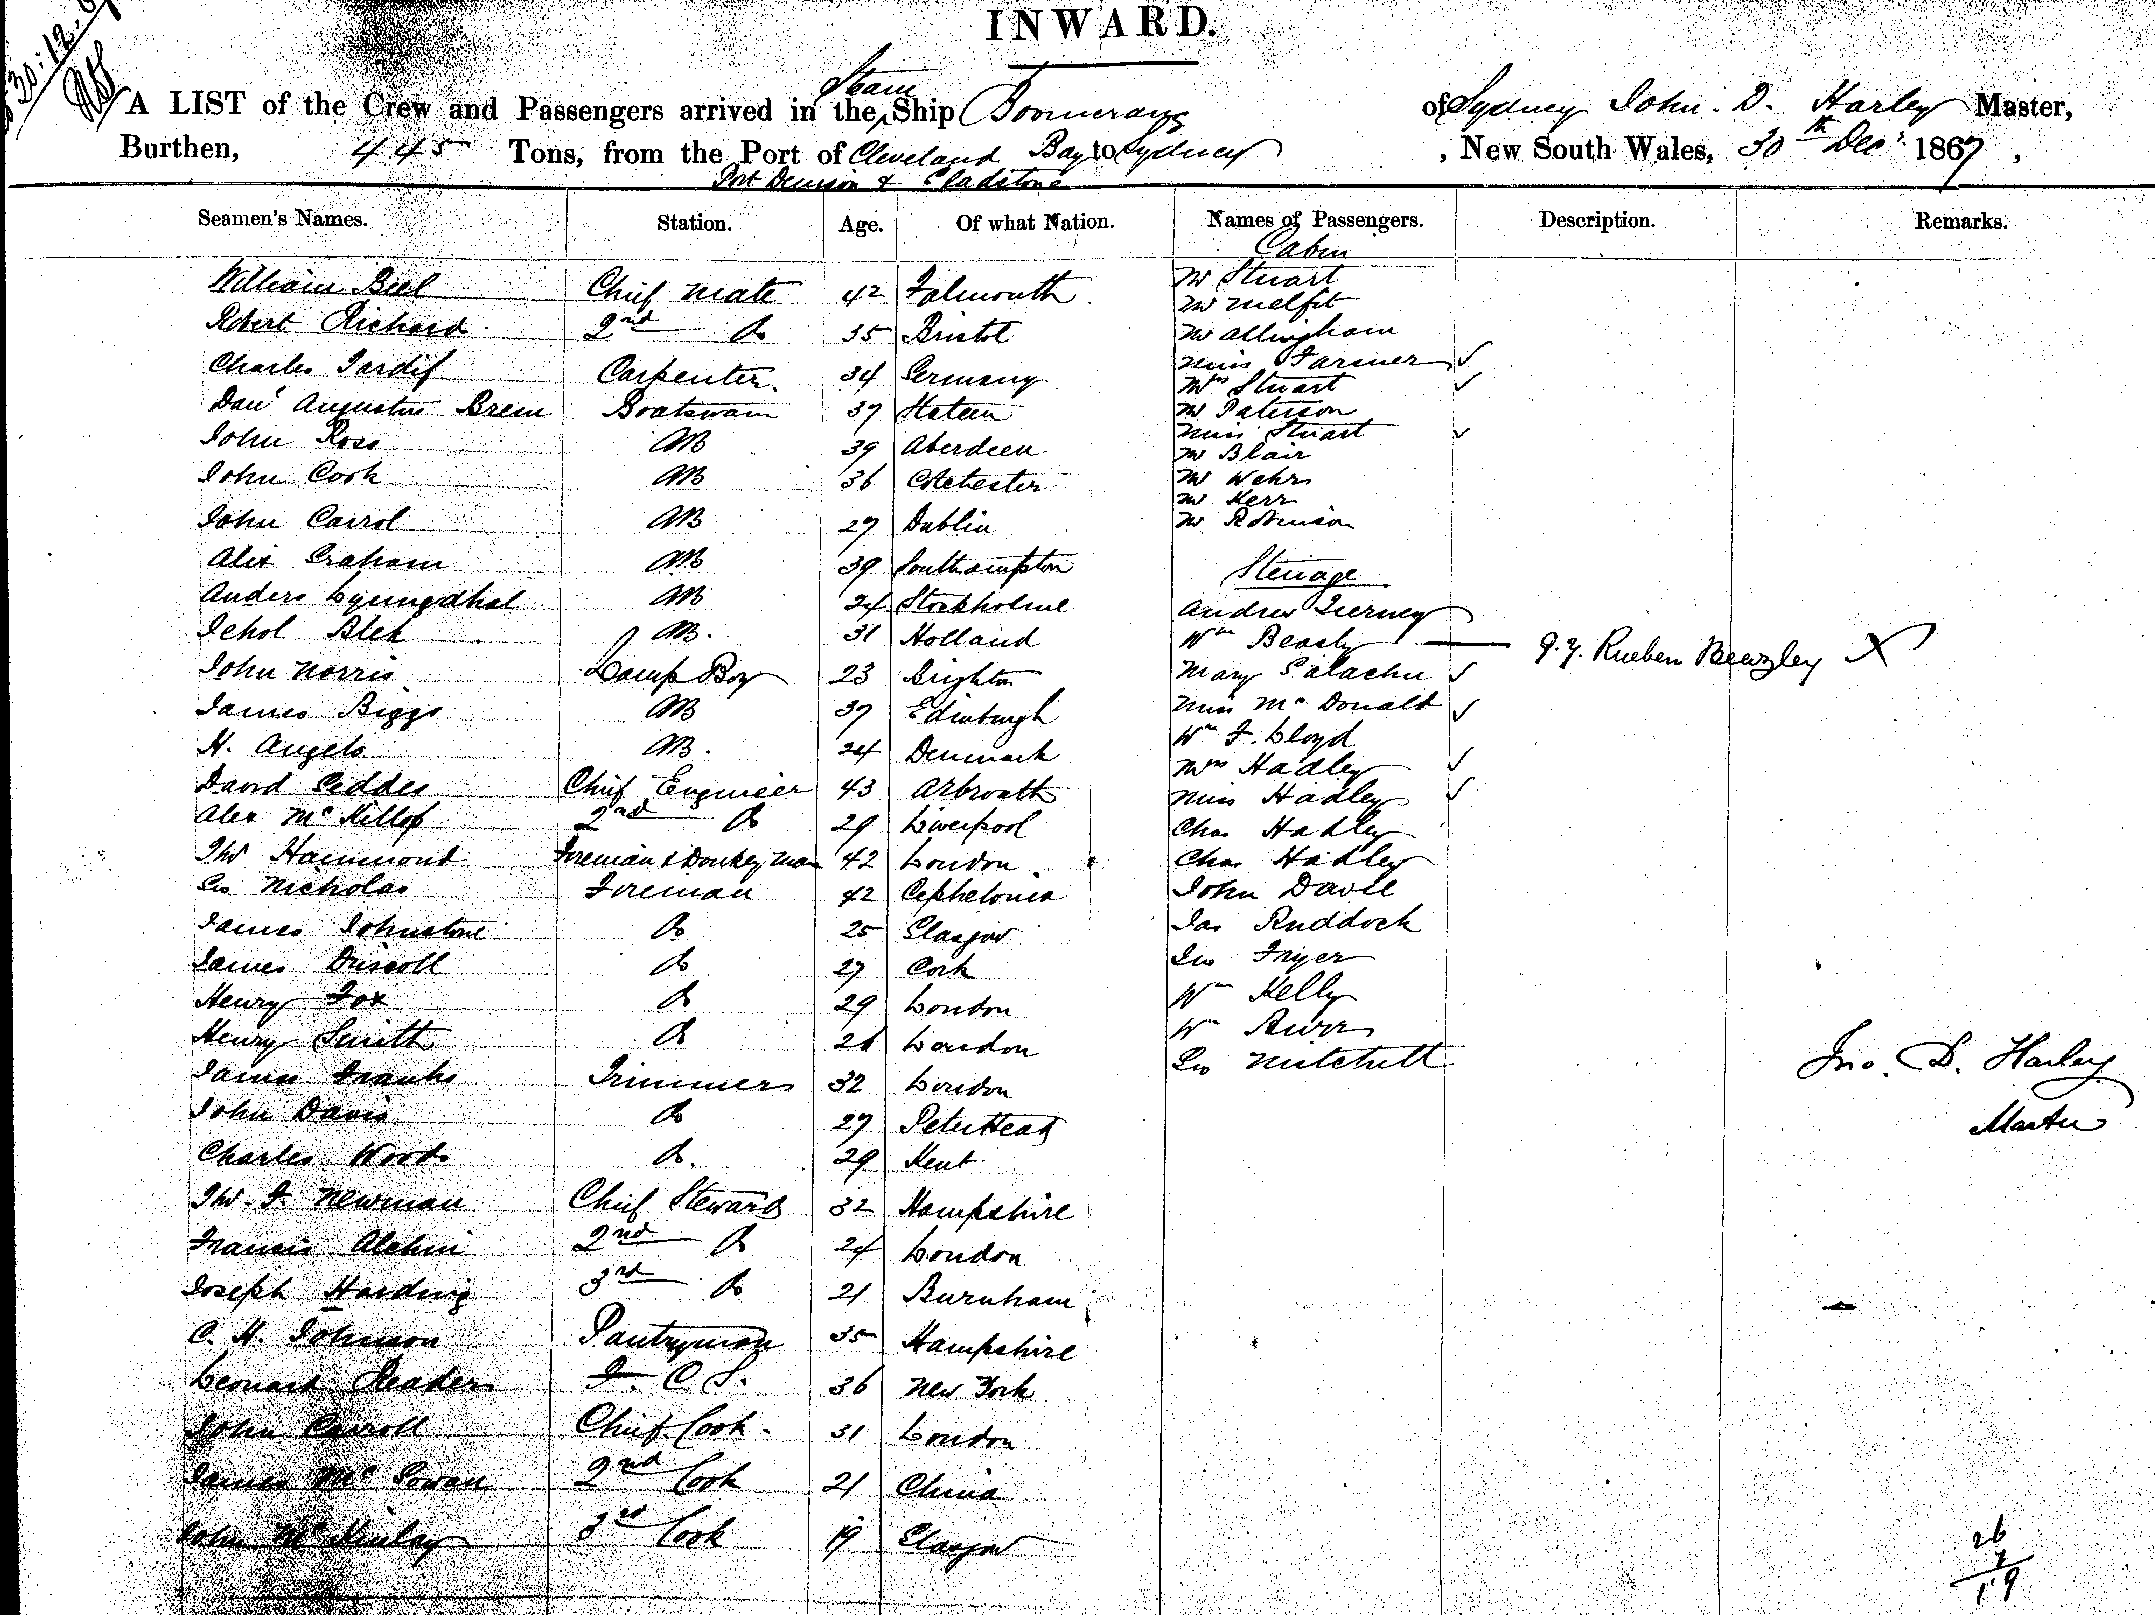 30.12.67
INWARD.
A LIST of the Crew and Passengers arrived in the Steam Ship Boomerang of Sydney John. D. Harley Master,
Burthen, 445 Tons, from the Port of Cleveland Bay to Sydney , New South Wales, 30th Decr 1867 ,
Port Denison & Gladstone
Seamen's Names. Station. Age. Of what Nation. Names of Passengers. Description. Remarks.
Cabin
William Beel Chief Mate 42 Falmouth Mr Stuart
Mr Melfit
Robert Richard 2nd Do 35 Bristol Mr Allingham
Miss Farmer ✓
Charles Tardif Carpenter. 34 Germany Mrs Stuart ✓
Danl Augustus Brem Boatswain 37 Mr Paterson
John Ross AB 39 Aberdeen Miss Stuart ✓
Mr Blair
John Cook AB 36 Colchester Mr Wehr
Mr Kerr
John Carrol AB 27 Dublin Mr Robinson
Alex Graham AB 39 Southampton Steerage
Anders Lyungdhal AB 24 Stockholme Andrew Tierney
Blek AB. 31 Holland Wm Beasly — Rueben Beazley X
John Norris Lamp Boy 23 Brighton Mary ✓
James Biggs AB 37 Edinburgh Miss McDonald ✓
H. Angelo AB. 24 Denmark Wm F. Lloyd
Mrs Hadley ✓
David Geddes Chief Engineer 43 Arbroath Miss Hadley ✓
Alex McKillop 2nd Do 29 Liverpool Chas Hadley
Thos Hammond Fireman & Donkey Man 42 London Chas Hadley
Geo Nicholas Fireman 42 Cephelonia John Davie
James Johnstone Do 25 Glasgow Jas Ruddock
James Driscoll Do 27 Cork Geo Fryer
Henry Fox Do 29 London Wm Kelly
Henry Smith Do 26 London Wm
Geo Mitchell Jno. D. Harley
James Franks Trimmers 32 London
John Davis Do 27 PeterHead Master
Charles Woods Do. 29 Kent
Thos F Newman Chief Steward 32 Hampshire
Francis Alchin 2nd Do 24 London
Joseph Harding 3rd Do 21 Burnham
C. H. Johnson Pantryman 35 Hampshire
Leonard Readers F. C S. 36 New York
John Carroll Chief Cook. 31 London
James McGowan 2nd Cook 21 China
John McKinlay 3rd Cook 19 Glasgow
26
7
19